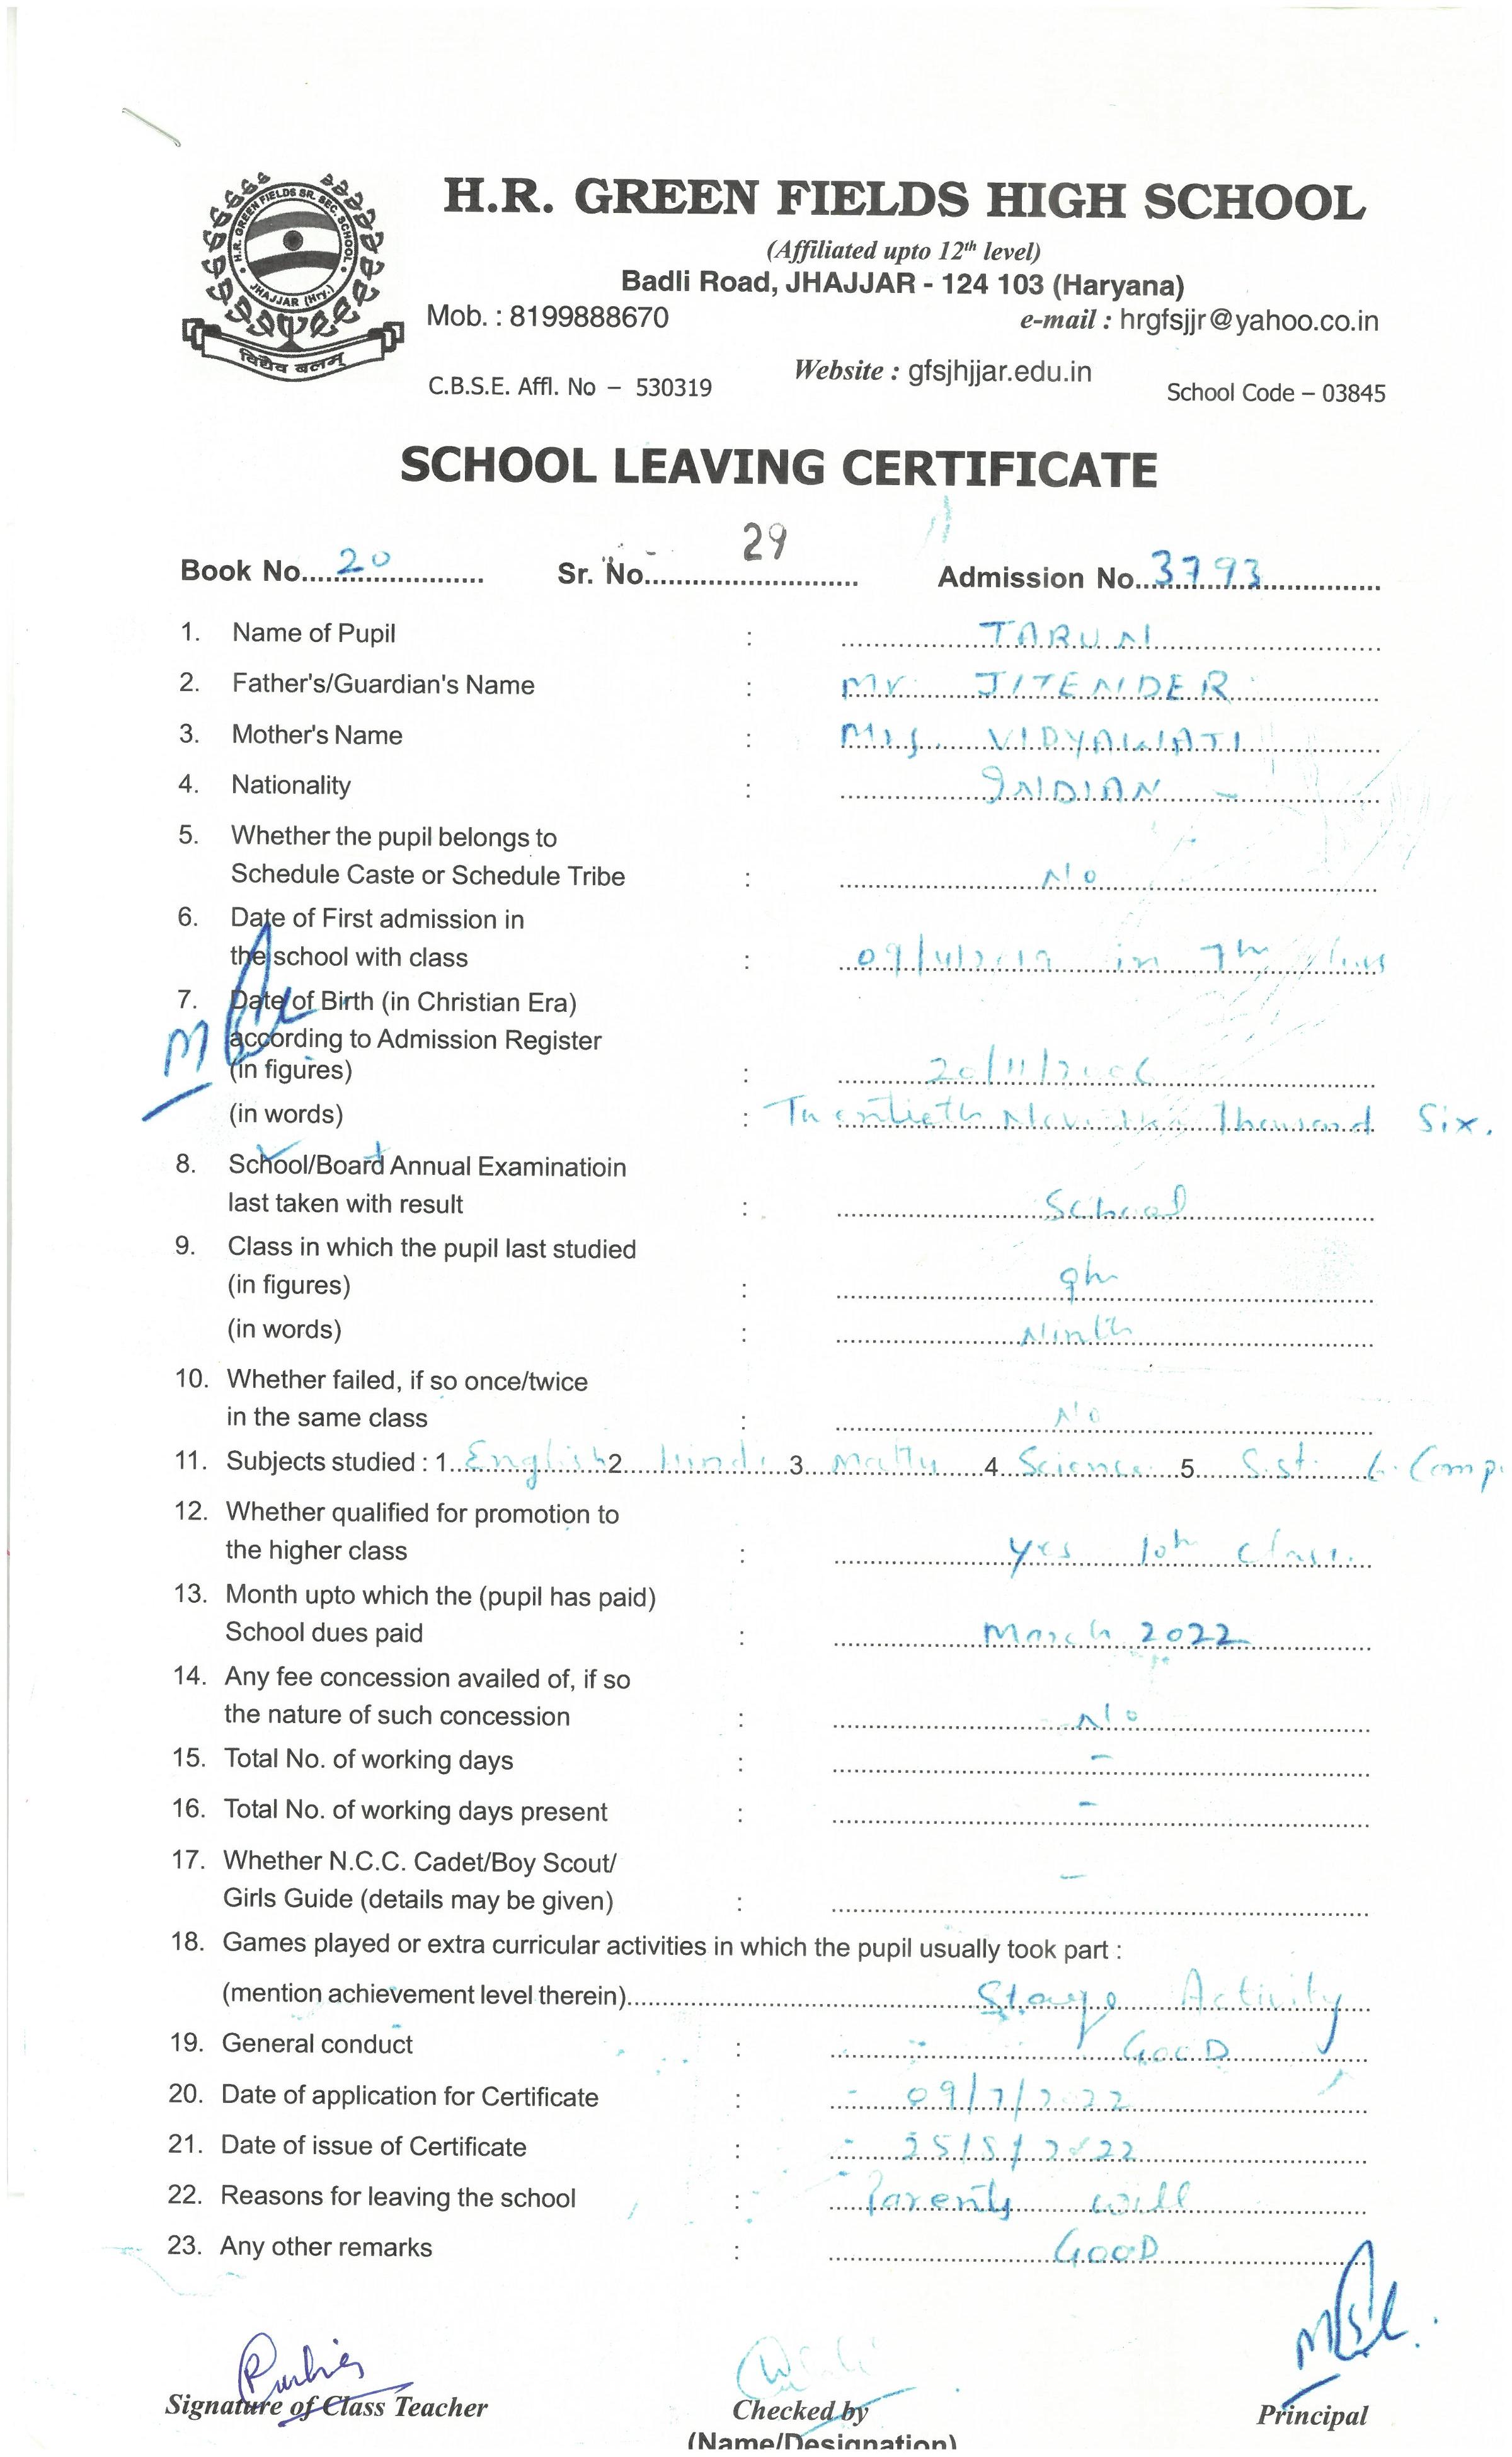 H.R. GREEN FIELDS SR. SEC. SCHOOL
JHAJJAR (Hry.)
विद्यैव बलम्
H.R. GREEN FIELDS HIGH SCHOOL
(Affiliated upto 12th level)
Badli Road, JHAJJAR - 124 103 (Haryana)
Mob. : 8199888670 e-mail : hrgfsjjr@yahoo.co.in
Website : gfsjhjjar.edu.in
C.B.S.E. Affl. No – 530319 School Code – 03845
SCHOOL LEAVING CERTIFICATE
Book No. 20 Sr. No. 29 Admission No. 3793
1. Name of Pupil : TARUN
2. Father's/Guardian's Name : Mr. JITENDER
3. Mother's Name : Mrs. VIDYAWATI
4. Nationality : INDIAN
5. Whether the pupil belongs to
Schedule Caste or Schedule Tribe : No
6. Date of First admission in
the school with class : in 7th class
7. Date of Birth (in Christian Era)
according to Admission Register
(in figures) : 20/11/2006
(in words) : Thousand Six.
8. School/Board Annual Examinatioin
last taken with result : School
9. Class in which the pupil last studied
(in figures) : 9th
(in words) : Ninth
10. Whether failed, if so once/twice
in the same class : No
11. Subjects studied : 1. English 2. Hindi 3. Maths 4. Science 5. S.st. 6. Comp.
12. Whether qualified for promotion to
the higher class : yes 10th class.
13. Month upto which the (pupil has paid)
School dues paid : March 2022
14. Any fee concession availed of, if so
the nature of such concession : No
15. Total No. of working days : -
16. Total No. of working days present : -
17. Whether N.C.C. Cadet/Boy Scout/ -
Girls Guide (details may be given) :
18. Games played or extra curricular activities in which the pupil usually took part :
(mention achievement level therein) Stage Activity
19. General conduct : GOOD
20. Date of application for Certificate : 09/7/2022
21. Date of issue of Certificate : 25/5/2022
22. Reasons for leaving the school : Parents will
23. Any other remarks : GOOD
Signature of Class Teacher Checked by Principal
(Name/Designation)